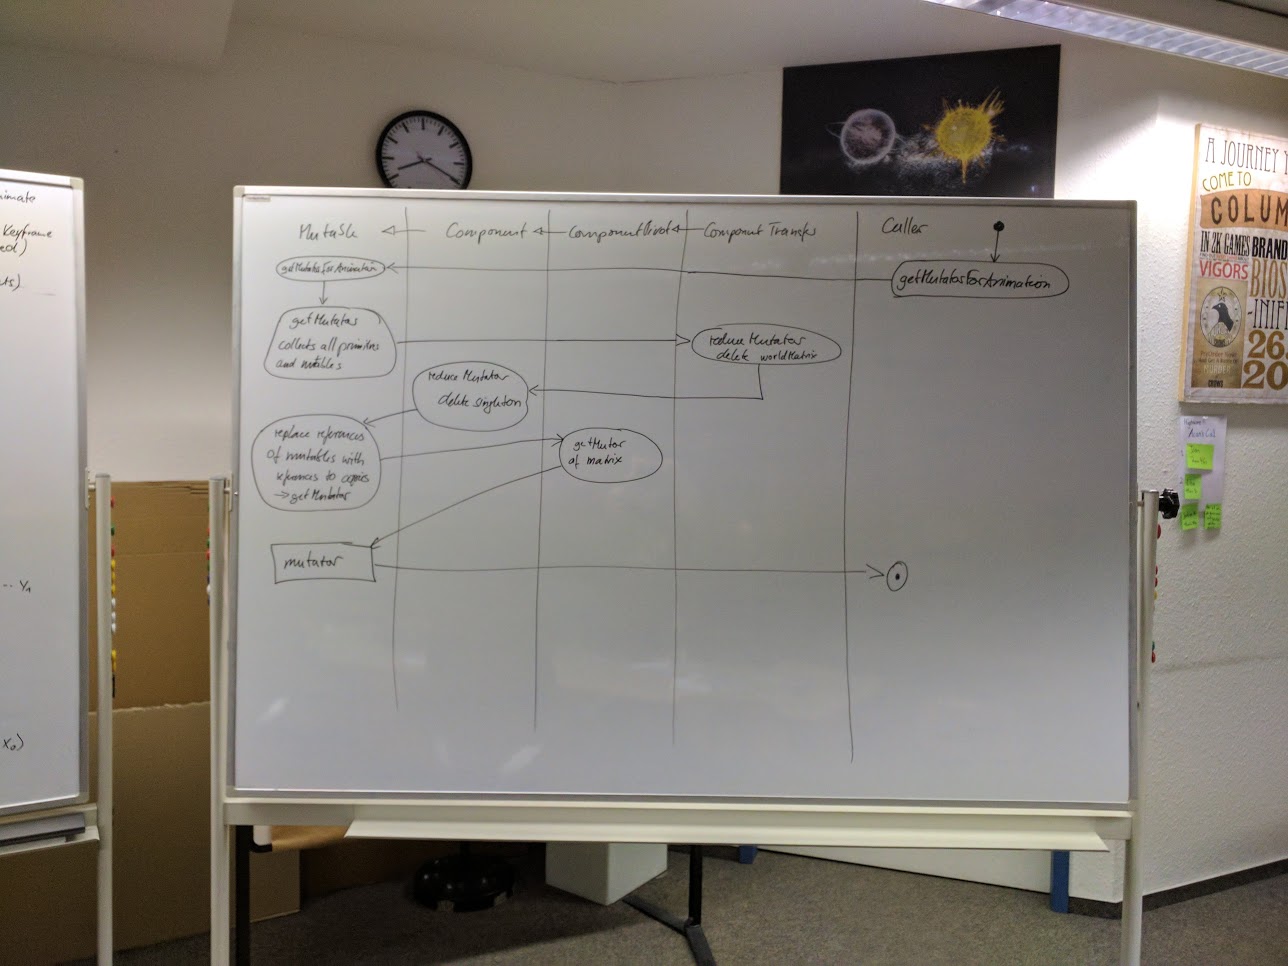 Mutable
Component
Component Pivot
Component Transfer
Caller
getMutatorForAnimation
getMutatorForAnimation
getMutator
collects all primitives
and mutables
reduce Mutator
delete worldMatrix
reduce Mutator
delete singleton
replace references
of mutables with
references to copies
→ getMutator
getMutor
of matrix
mutator
nimate
Keyframe
.. Y₁
X₀)
A JOURNEY
COME TO
COLUM
IN 2K GAMES
BRAND
VIGORS
BIOS
-INFI
MURDER
CROWS
26.
20